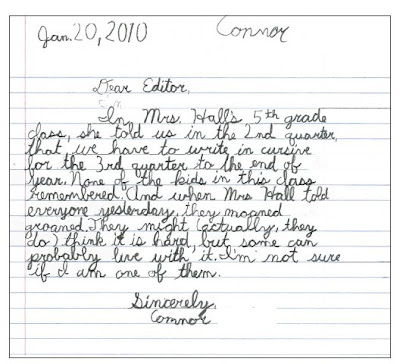 Jan. 20, 2010 Connor
Dear Editor,
In Mrs. Hall's 5th grade
class, she told us in the 2nd quarter,
that, we have to write in cursive
for the 3rd quarter to the end of
year. None of the kids in this class
remembered. And when Mrs Hall told
everyone yesterday, they moaned
groaned. They might (actually, they
do) think it is hard, but some can
probably live with it. I'm not sure
if I am one of them.
Sincerely,
Connor